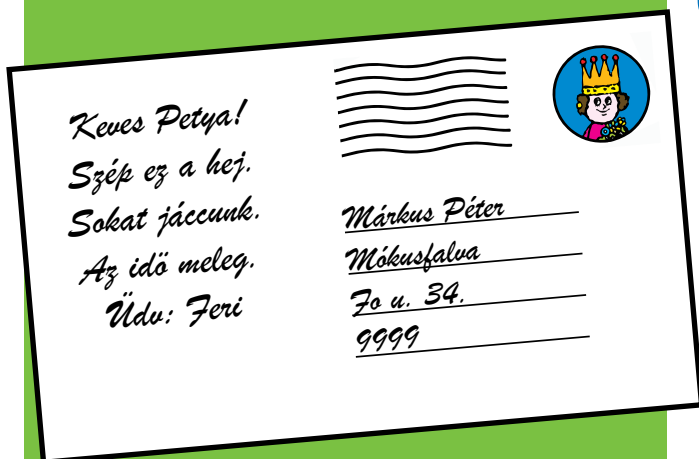 Keves Petya!
Szép ez a hej.
Sokat jáccunk.
Az idö meleg.
Üdv: Feri
Márkus Péter
Mókusfalva
Fo u. 34.
9999